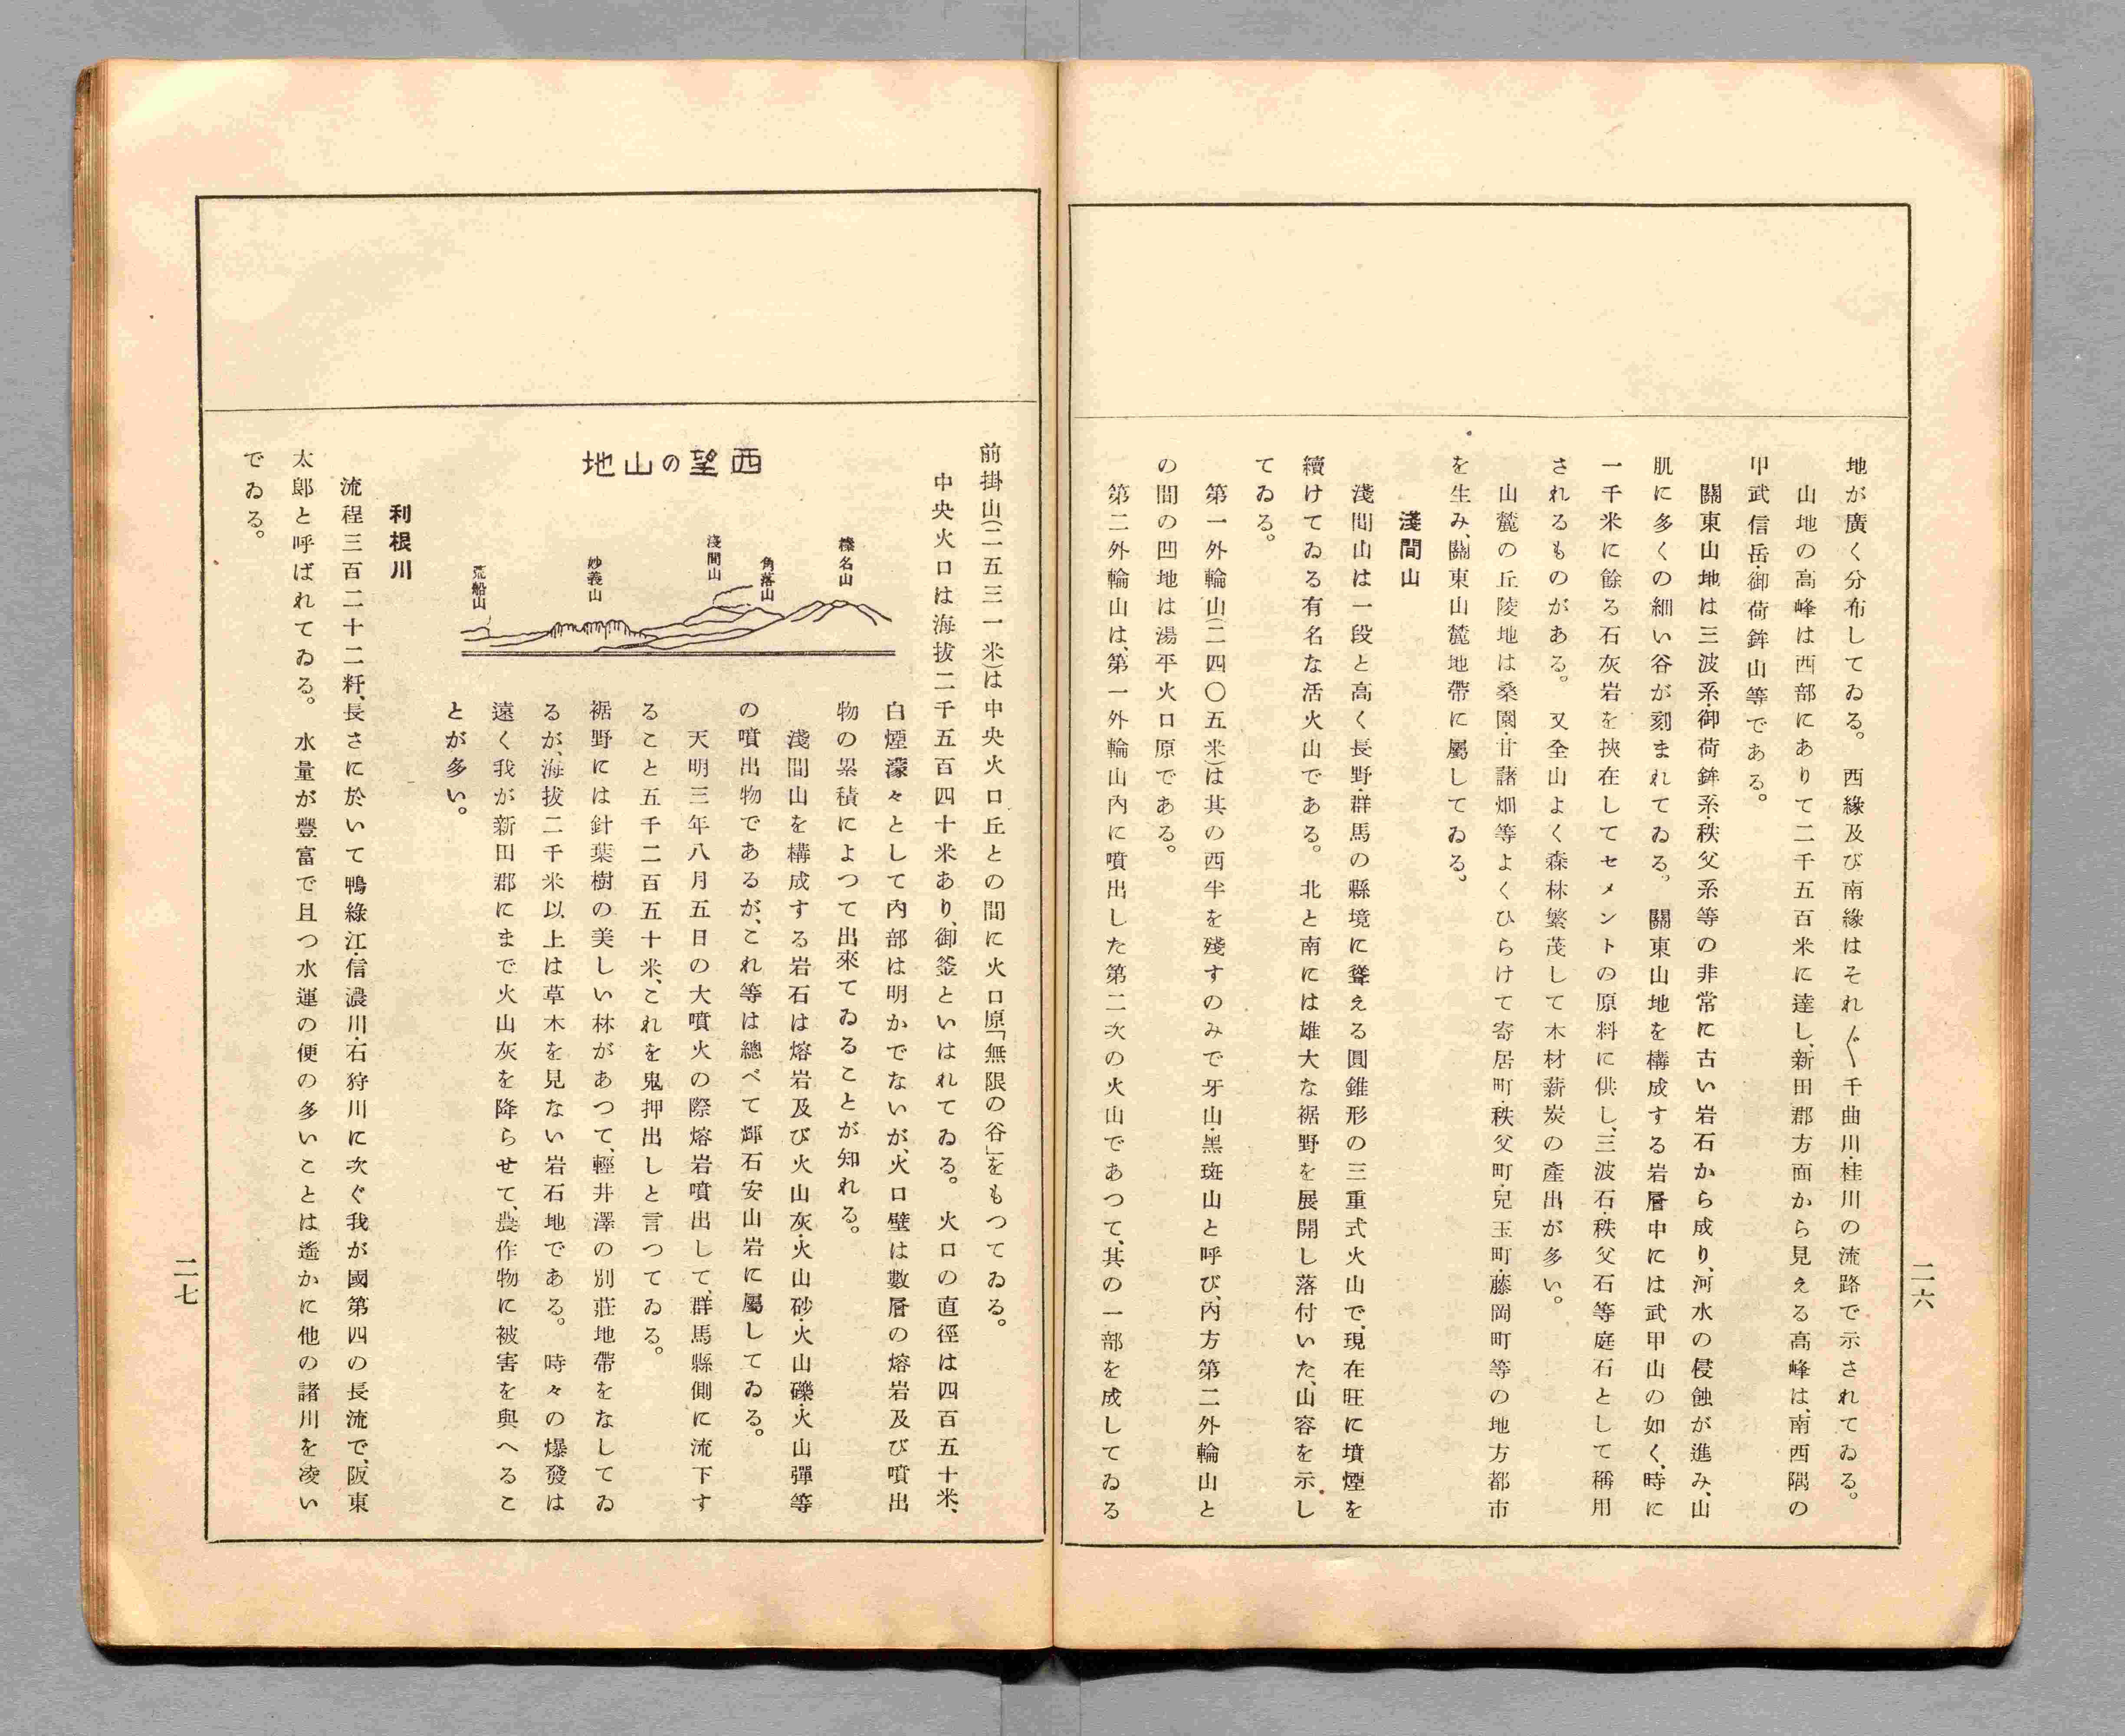 地が廣く分布してゐる。　西緣及び南緣はそれ〲千曲川・桂川の流路で示されてゐる。
山地の高峰は西部にありて二千五百米に達し、新田郡方面から見える高峰は、南西隅の
甲武信岳・御荷鉾山等である。
關東山地は三波系・御荷鉾系・秩父系等の非常に古い岩石から成り、河水の侵蝕が進み、山
肌に多くの細い谷が刻まれてゐる。　關東山地を構成する岩層中には武甲山の如く、時に
一千米に餘る石灰岩を挾在してセメントの原料に供し、三波石・秩父石等庭石として稱用
されるものがある。　又全山よく森林繁茂して木材薪炭の產出が多い。
山麓の丘陵地は桑園・甘諸畑等よくひらけて寄居町・秩父町・兒玉町・藤岡町等の地方都市
を生み、關東山麓地帶に屬してゐる。
淺間山
淺間山は一段と高く長野・群馬の縣境に聳える圓錐形の三重式火山で、現在旺に墳煙を
續けてゐる有名な活火山である。　北と南には雄大な裾野を展開し落付いた、山容を示し
てゐる。
第一外輪山(二四〇五米)は其の西半を殘すのみで牙山・黑斑山と呼び、內方第二外輪山と
の間の凹地は湯平火口原である。
第二外輪山は、第一外輪山內に噴出した第二次の火山であつて、其の一部を成してゐる
二六
前掛山(二五三一米)は中央火口丘との間に火口原「無限の谷」をもつてゐる。
中央火口は海拔二千五百四十米あり、御釜といはれてゐる。　火口の直徑は四百五十米、
白煙濛々として內部は明かでないが、火口壁は數層の熔岩及び噴出
物の累積によつて出來てゐることが知れる。
淺間山を構成する岩石は熔岩及び火山灰・火山砂・火山礫・火山彈等
の噴出物であるが、これ等は總べて輝石安山岩に屬してゐる。
天明三年八月五日の大噴火の際熔岩噴出して、群馬縣側に流下す
ること五千二百五十米、これを鬼押出しと言つてゐる。
裾野には針葉樹の美しい林があつて、輕井澤の別莊地帶をなしてゐ
るが、海拔二千米以上は草木を見ない岩石地である。　時々の爆發は
遠く我が新田郡にまで火山灰を降らせて、農作物に被害を與へるこ
とが多い。
西望の山地
榛名山
角落山
淺間山
妙義山
荒船山
利根川
流程三百二十二粁、長さに於いて鴨綠江・信濃川・石狩川に次ぐ我が國第四の長流で、阪東
太郎と呼ばれてゐる。　水量が豐富で且つ水運の便の多いことは遙かに他の諸川を凌い
でゐる。
二七